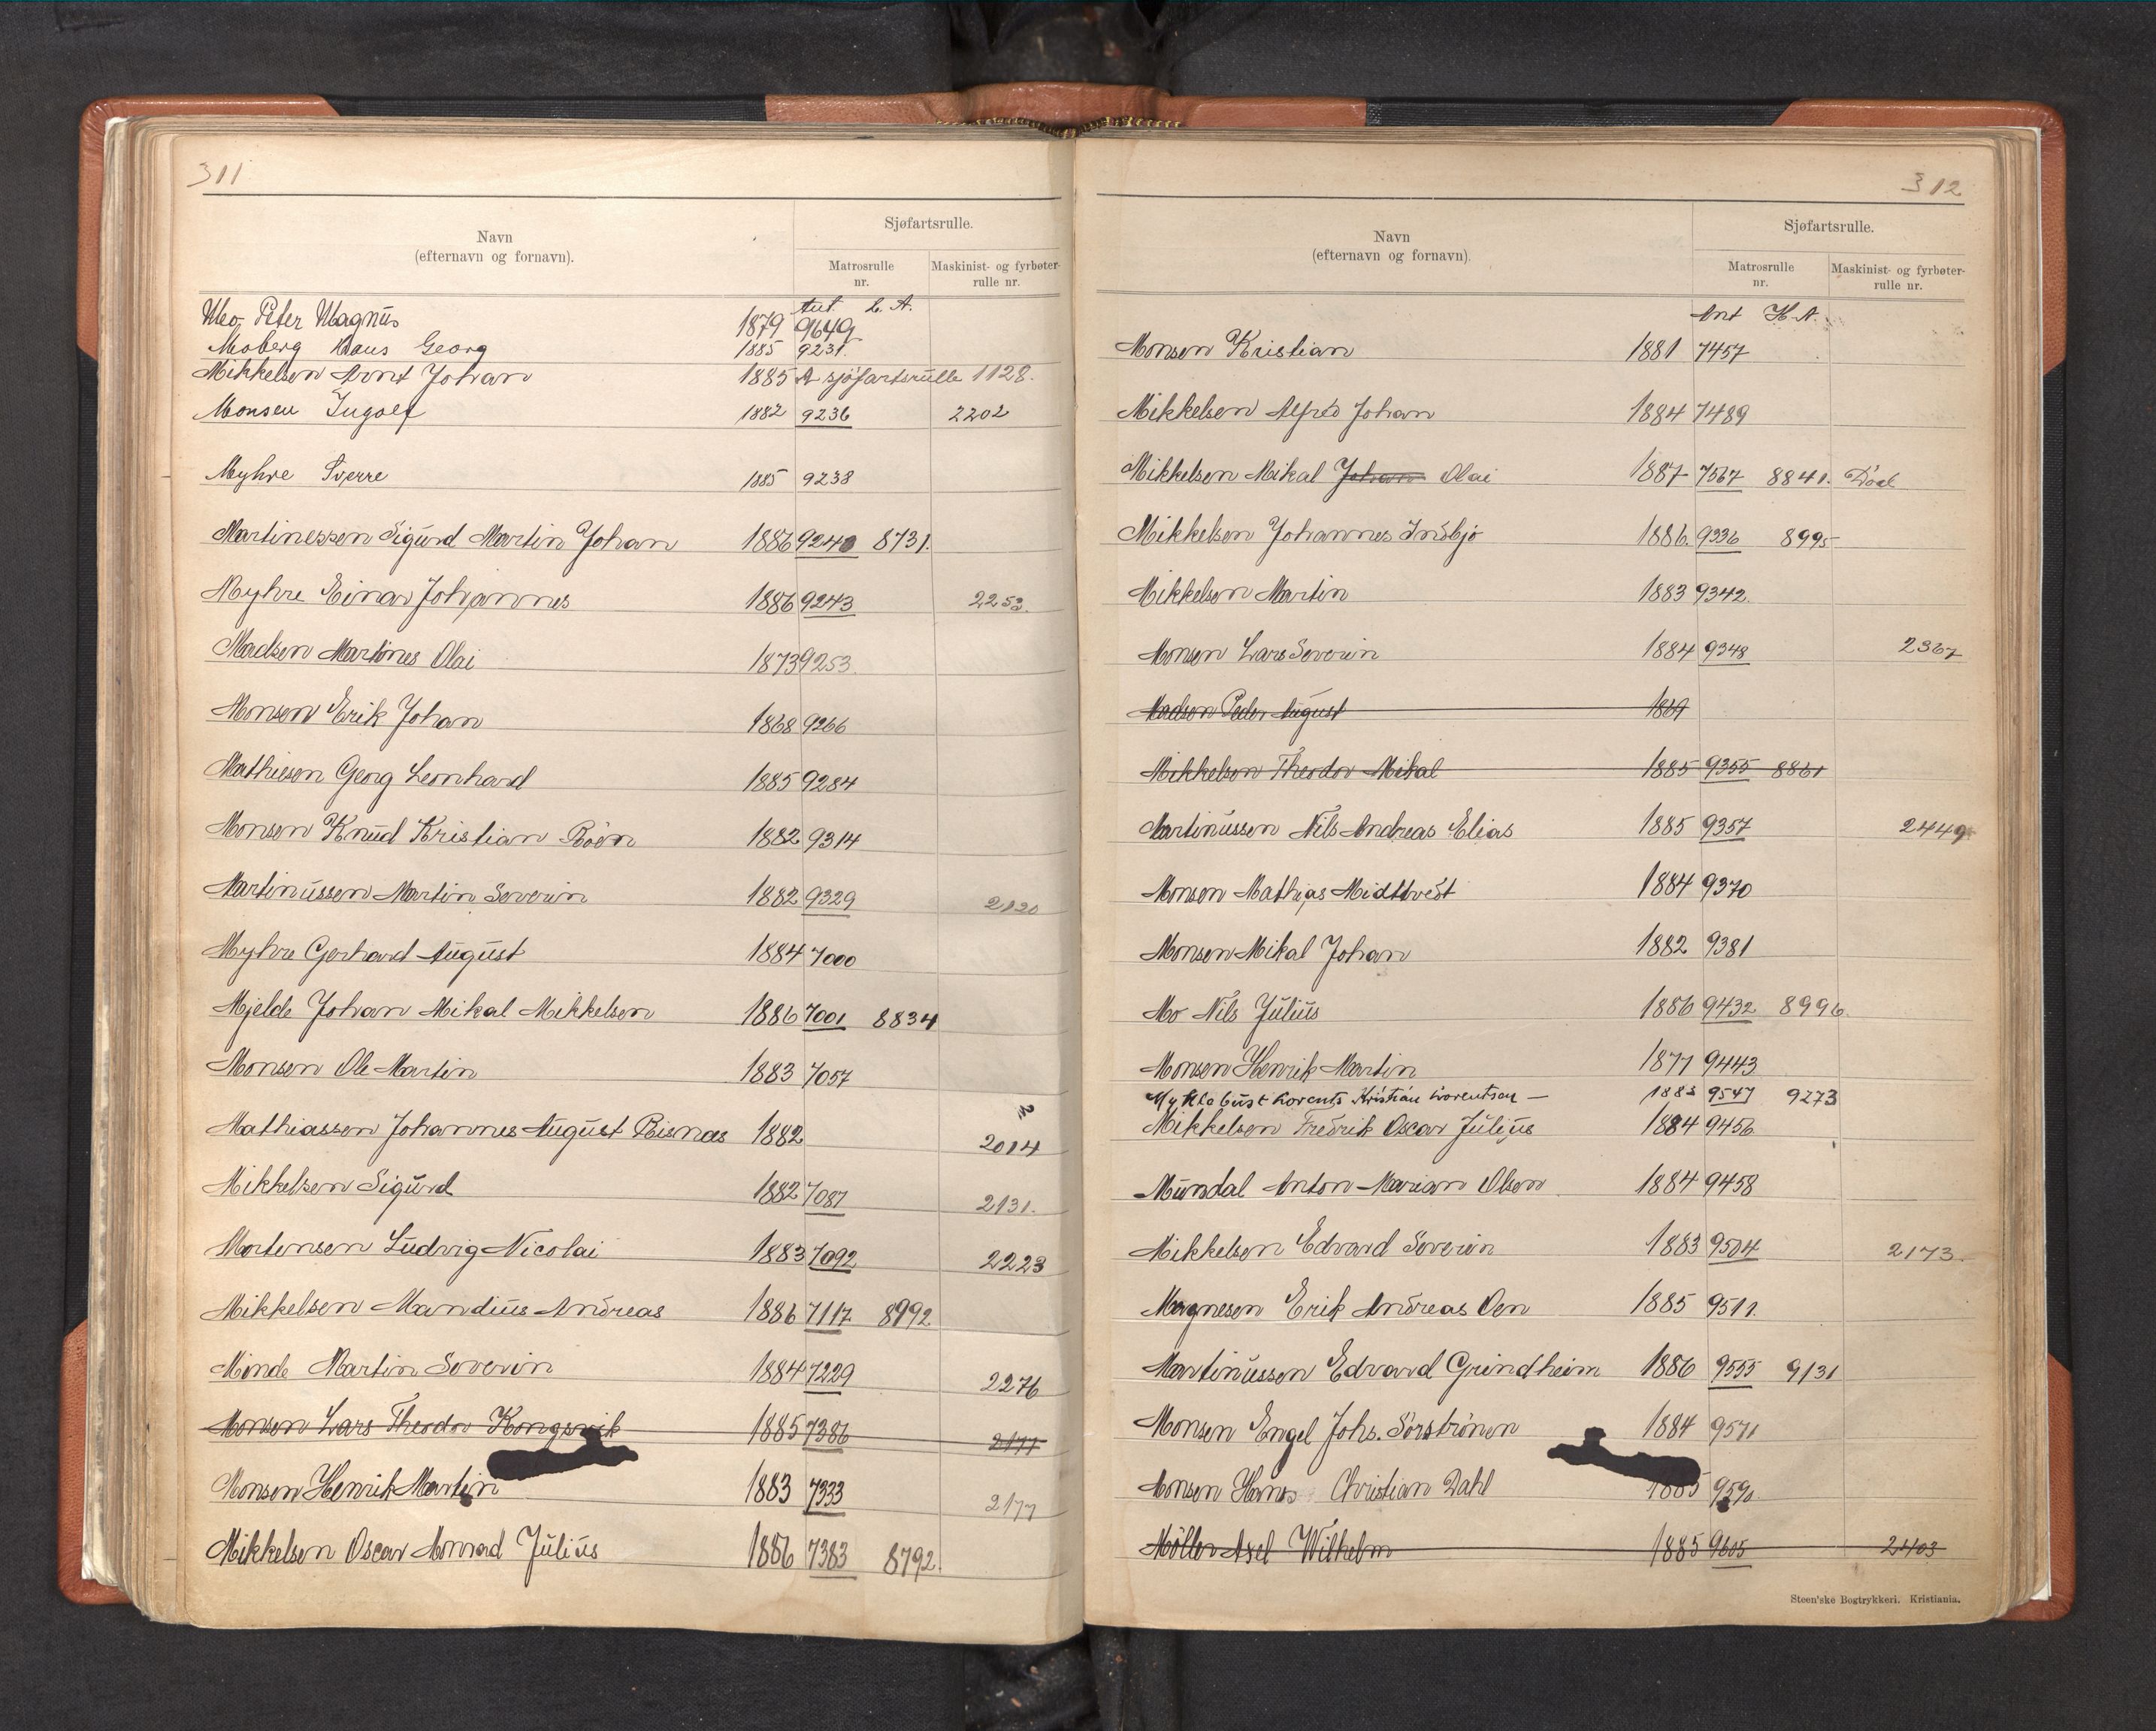 311
Navn
(efternavn og fornavn).
Sjøfartsrulle.
Matrosrulle
nr.
Maskinist- og fyrbøter-
rulle nr.
Ant. H. A.
Mo Peter Magnus 1879 9649
Moberg Klaus Georg 1885 9231.
Mikkelsen Arnt Johan 1885 A sjøfartsrulle 1128.
Monsen Ingolf 1882 9236 2202
Myhre Sverre 1885 9238
Martinessen Sigurd Martin Johan 1886 9240 8731.
Myhre Einar Johannes 1886 9243 2253.
Madsen Martines Olai 1873 9253.
Monsen Erik Johan 1868 9266
Mathiesen Georg Leonhard 1885 9284
Monsen Knud Kristian Böen 1882 9314
Martinussen Martin Severin 1882 9329 2120
Myhre Gerhard August 1884 7000
Mjelde Johan Mikal Mikkelsen 1886 7001 8834
Monsen Ole Martin 1883 7057
Mathiassen Johannes August Risnes 1882 2014
Mikkelsen Sigurd 1882 7087 2131.
Mortensen Ludvig Nicolai 1883 7092 2223
Mikkelsen Mandius Andreas 1886 7117 8992
Minde Martin Severin 1884 7229 2276
Monsen Lars Theodor Kongsvik 1885 7386 2177
Monsen Henrik Martin 1883 7333 2177
Mikkelsen Oscar Monrad Julius 1886 7383 8792.
312
Navn
(efternavn og fornavn).
Sjøfartsrulle.
Matrosrulle
nr.
Maskinist- og fyrbøter-
rulle nr.
Ant H. A.
Monsen Kristian 1881 7457
Mikkelsen Alfred Johan 1884 7489
Mikkelsen Mikal Johan Olai 1887 7567 8841. Död
Mikkelsen Johannes Indbjo 1886. 9336 8995
Mikkelsen Martin 1883 9342.
Monsen Lars Severin 1884 9348 2367
Madsen Peder August 1869
Mikkelsen Theodor Mikal 1885 9355 8861
Martinussen Nils Andreas Elias 1885 9357 2449
Monsen Mathias Midttveit 1884 9370
Monsen Mikal Johan 1882 9381
Mo Nils Julius 1886 9432 8996.
Monsen Henrik Martin 1877 9443
Myklebust Lorents Kristian Lorentsen — 1883 9547 9273
Mikkelsen Fredrik Oscar Julius 1884 9456
Mundal Anton Marian Olsen 1884 9458
Mikkelsen Edvard Severin 1883 9504 2173.
Magnesen Erik Andreas Oen 1885 9511.
Martinussen Edvard Grindheim 1886 9555 9131
Monsen Engel Johs. Sörströnen 1884 9571
Monsen Hans Christian Dahl 1885 9590.
Möller Axel Wilhelm 1885 9605 2403
Steen'ske Bogtrykkeri. Kristiania.